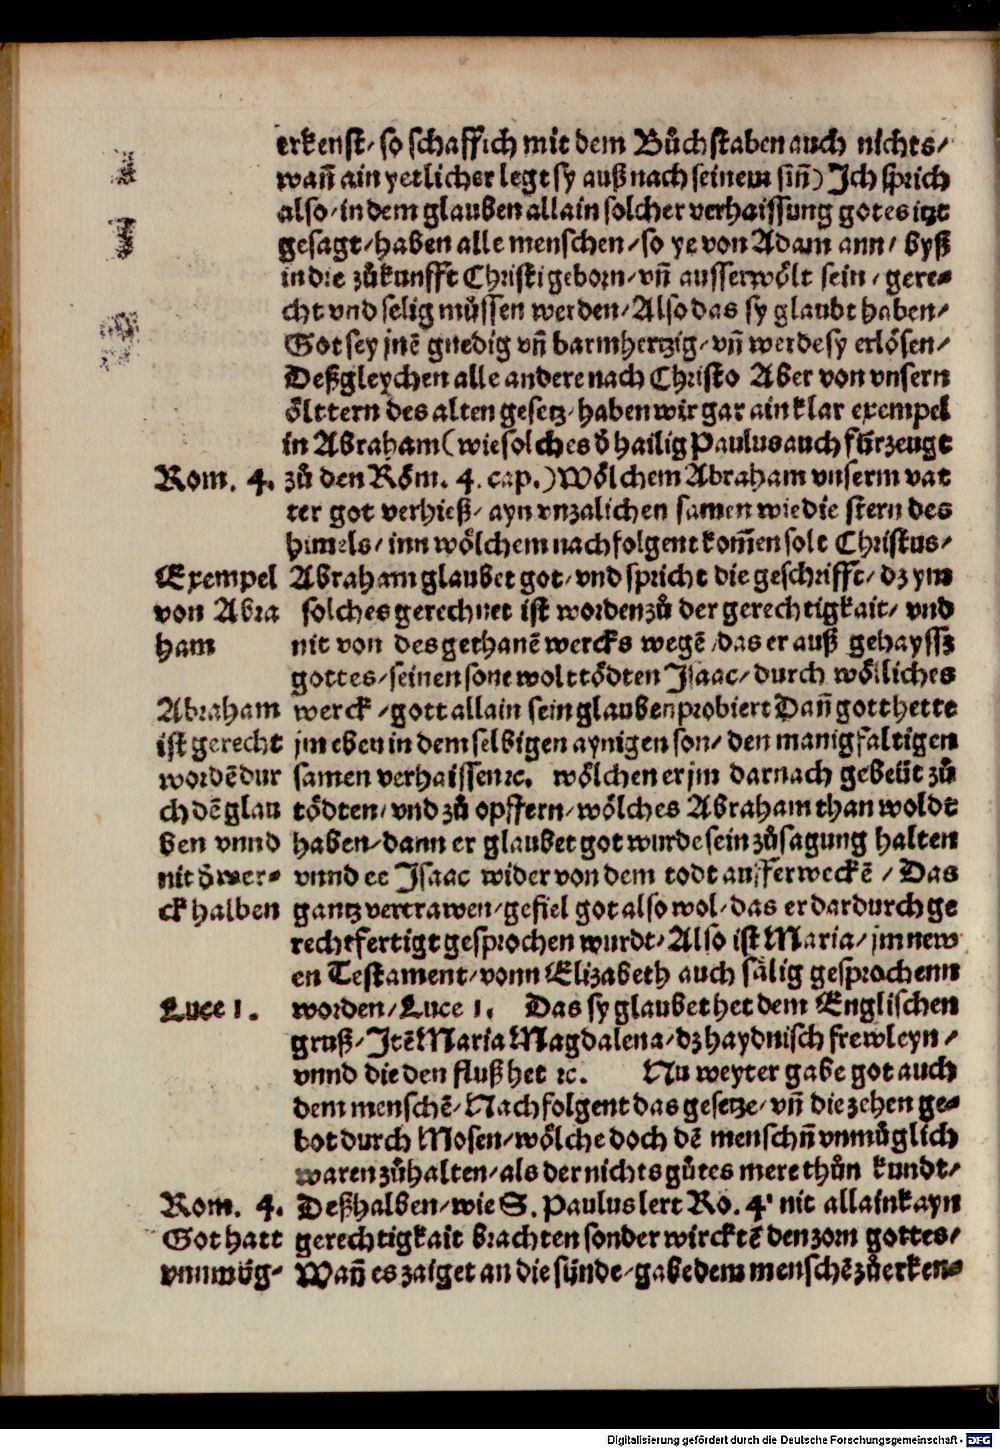 erkenst/ so schaff ich mit dem Bůchstaben auch nichts/
wañ ain yetlicher legt sy auß nach seinem siñ) Ich sprich
also/ in dem glauben allain solcher verhaissung gotes itzt
gesagt/ haben alle menschen/ so ye von Adam ann/ byß
in die zůkunfft Christi geborn/ vñ ausserwölt sein/ gere-
cht vnd selig müssen werden/ Also das sy glaubt haben/
Got sey jnē gnedig vñ barmhertzig/ vñ werde sy erlösen/
Deßgleychen alle andere nach Christo Aber von vnsern
ölttern des alten gesetz/ haben wir gar ain klar exempel
in Abraham (wie solches d̄ hailig Paulus auch fürzeugt
Rom. 4. zů den Röm. 4. cap.) Wölchem Abraham vnserm vat
ter got verhieß/ ayn vnzalichen samen wie die stern des
himels/ inn wölchem nachfolgent kom̄en solt Christus/
Exempel Abraham glaubet got/ vnd spricht die geschrifft/ dz ym
von Abra solches gerechnet ist worden zů der gerechtigkait/ vnd
ham nit von des gethanē wercks wegē/ das er auß gehayssz
gottes/ seinen sone wolt tödten Isaac/ durch wölliches
Abraham werck/ gott allain sein glauben probiert Dañ got thette
ist gerecht jm eben in dem selbigen aynigen son/ den manigfaltigen
wordē dur samen verhaissen ꝛc. wölchen er jm darnach gebeüt zů
ch dē glau tödten/ vnd zů opffern/ wölches Abraham than woldt
ben vnnd haben/ dann er glaubet got wurde sein zůsagung halten
nit d̄ wer- vnnd ee Isaac wider von dem todt aufferweckē/ Das
ck halben gantz vertrawen/ gefiel got also wol/ das er dardurch ge
rechtfertigt gesprochen wurdt/ Also ist Maria/ jm new
en Testament/ vonn Elizabeth auch sälig gesprochenn
Luce 1. worden/ Luce 1. Das sy glaubet het dem Englischen
gruß/ Itē Maria Magdalena/ dz haydnisch frewleyn/
vnnd die den fluß het ꝛc. Nu weyter gabe got auch
dem menschē/ Nachfolgent das gesetze/ vñ die zehen ge-
bot durch Mosen/ wölche doch dē menschñ vnmüglich
waren zůhalten/ als der nichts gůtes mere thůn kundt/
Rom. 4. Deßhalben/ wie S. Paulus lert Ro. 4. nit allain kayn
Got hatt gerechtigkait brachten sonder wircktē den zorn gottes/
vnmüg- Wañ es zaiget an die sünde/ gabe dem menschē zůerken-
Digitalisierung gefördert durch die Deutsche Forschungsgemeinschaft - DFG